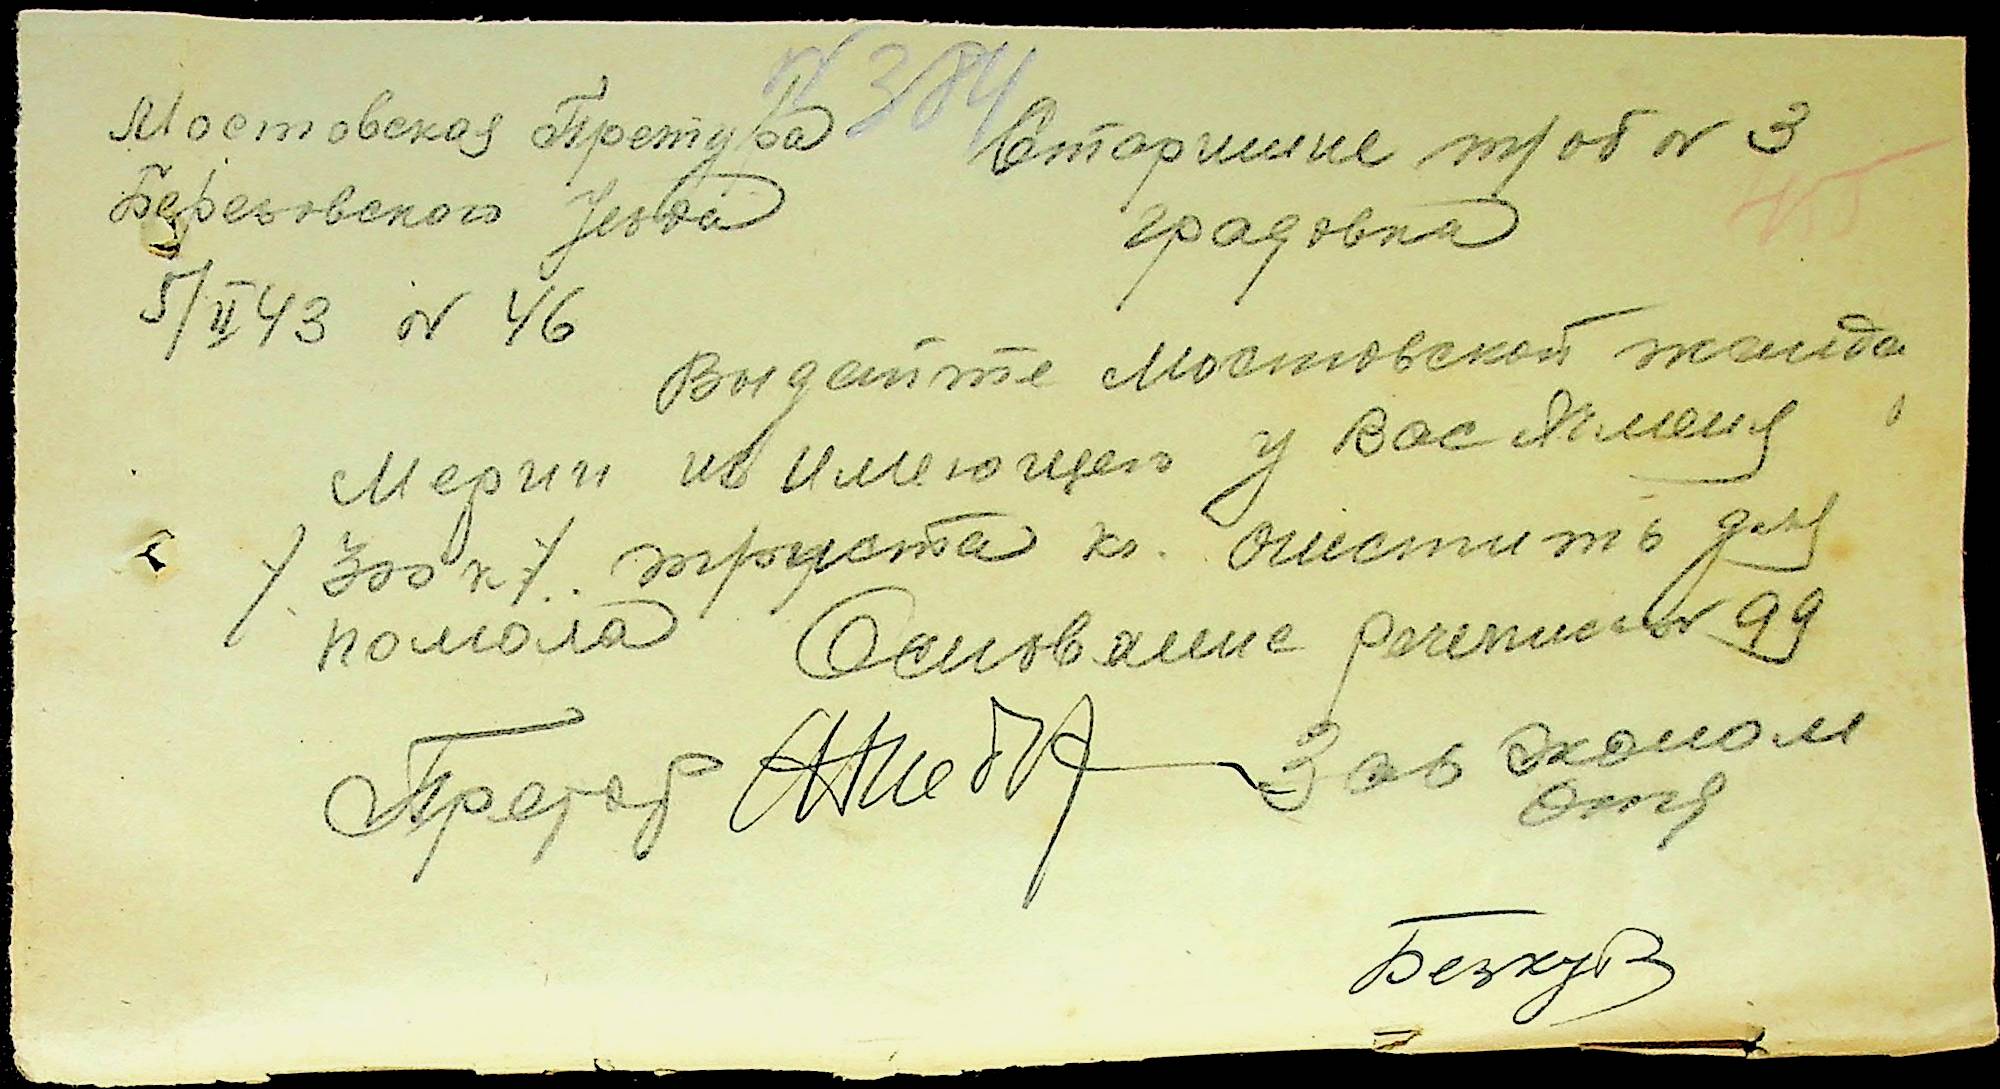 № 384
Мостовская Претура
Березовского Уезда
5/II 43 № 46
Старшине тр/об № 3
Градовка
Выдайте Мостовской жанда
мерии из имеющего у вас Ячменя
/300 к/.. триста кг. очистить для
помола Основание № 99
Претор
Зав эконом
отд